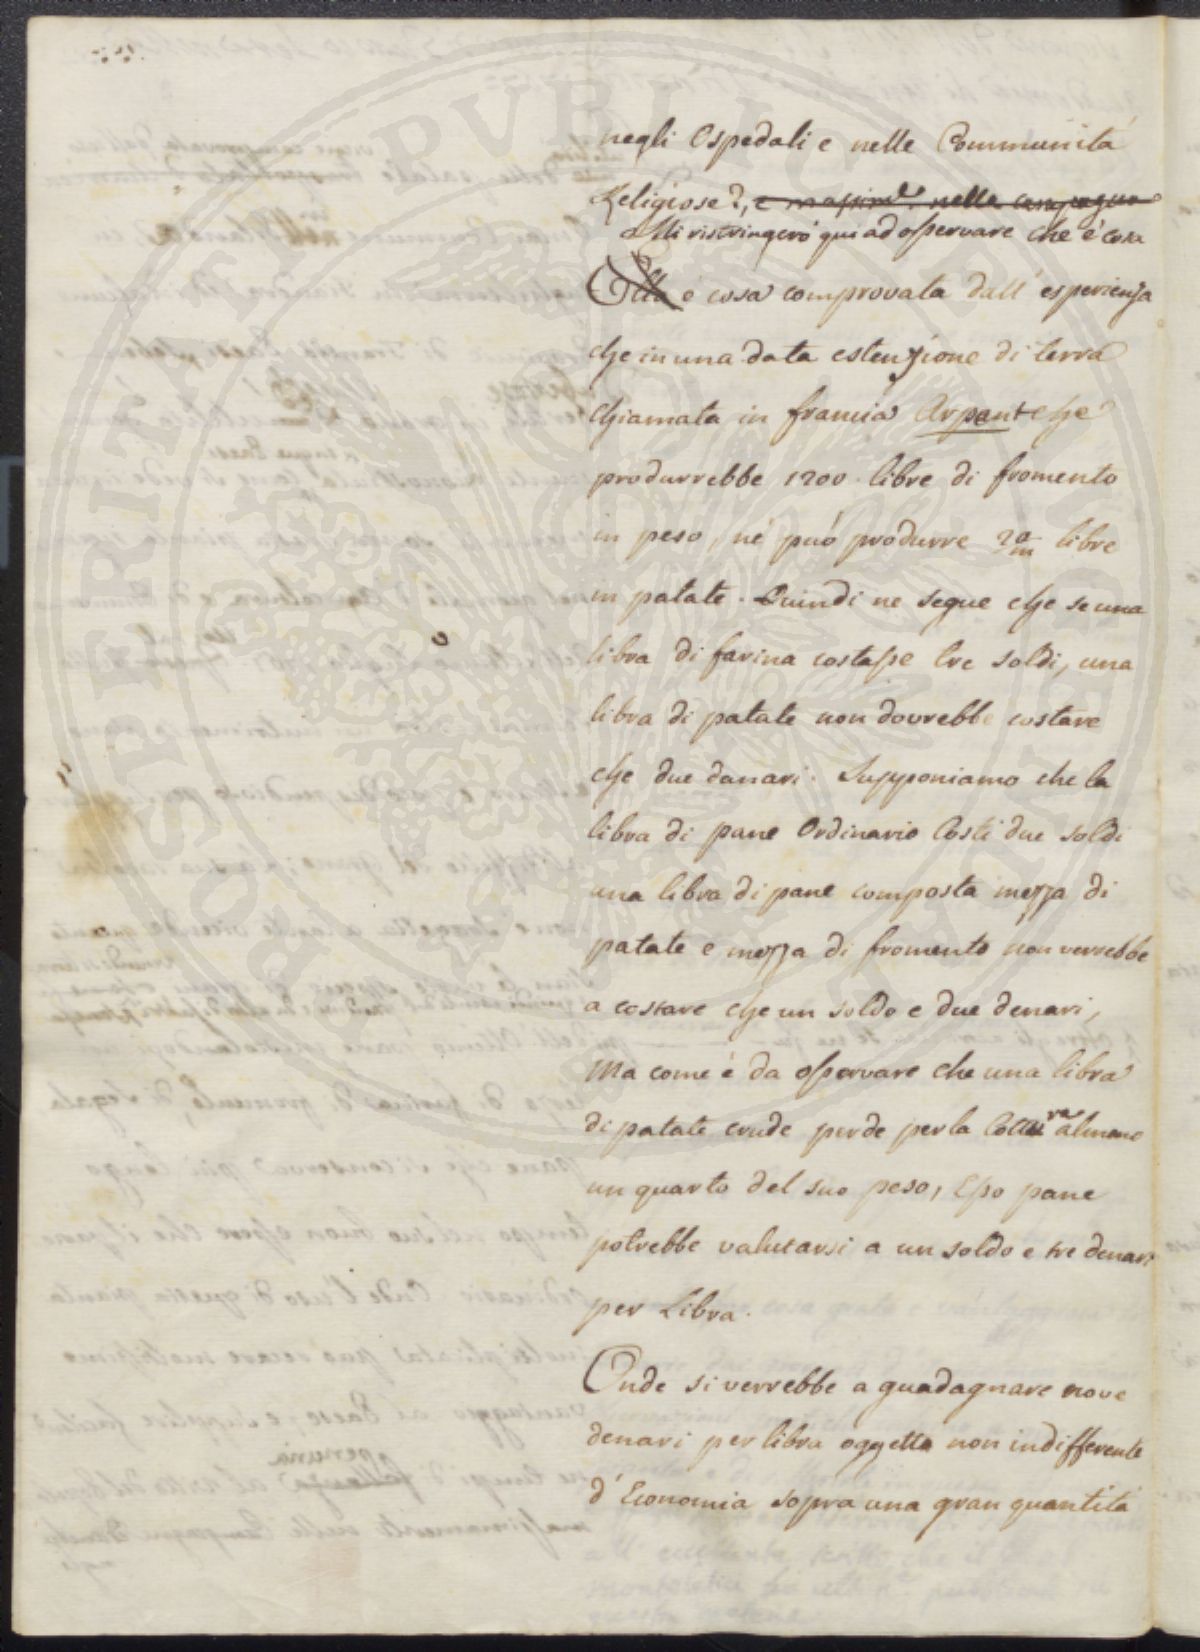 negli Ospedali e nelle Communità
Religiose?, e massim.e nelle campagne
Mi ristringerò qui ad osservare che è cosa
Ella è cosa comprovata dall' esperienza
che in una data estenzione di terra
chiamata in francia Arpant che
produrrebbe 1200. libre di fromento
in peso, nè può produrre libre
in patate. Quindi ne segue che se una
libra di farina costasse tre soldi, una
libra di patate non dovrebbe costare
che due danari. Supponiamo che la
libra di pane Ordinario Costi due soldi
una libra di pane composta mezza di
patate e mezza di fromento non verrebbe
a costare che un soldo e due denari,
Ma come è da osservare che una libra
di patate crude perde per la almeno
un quarto del suo peso, Esso pane
potrebbe valutarsi a un soldo e tre denari
per Libra.
Onde si verrebbe a guadagnare nove
denari per libra oggetto non indifferente
d' Economia sopra una gran quantità